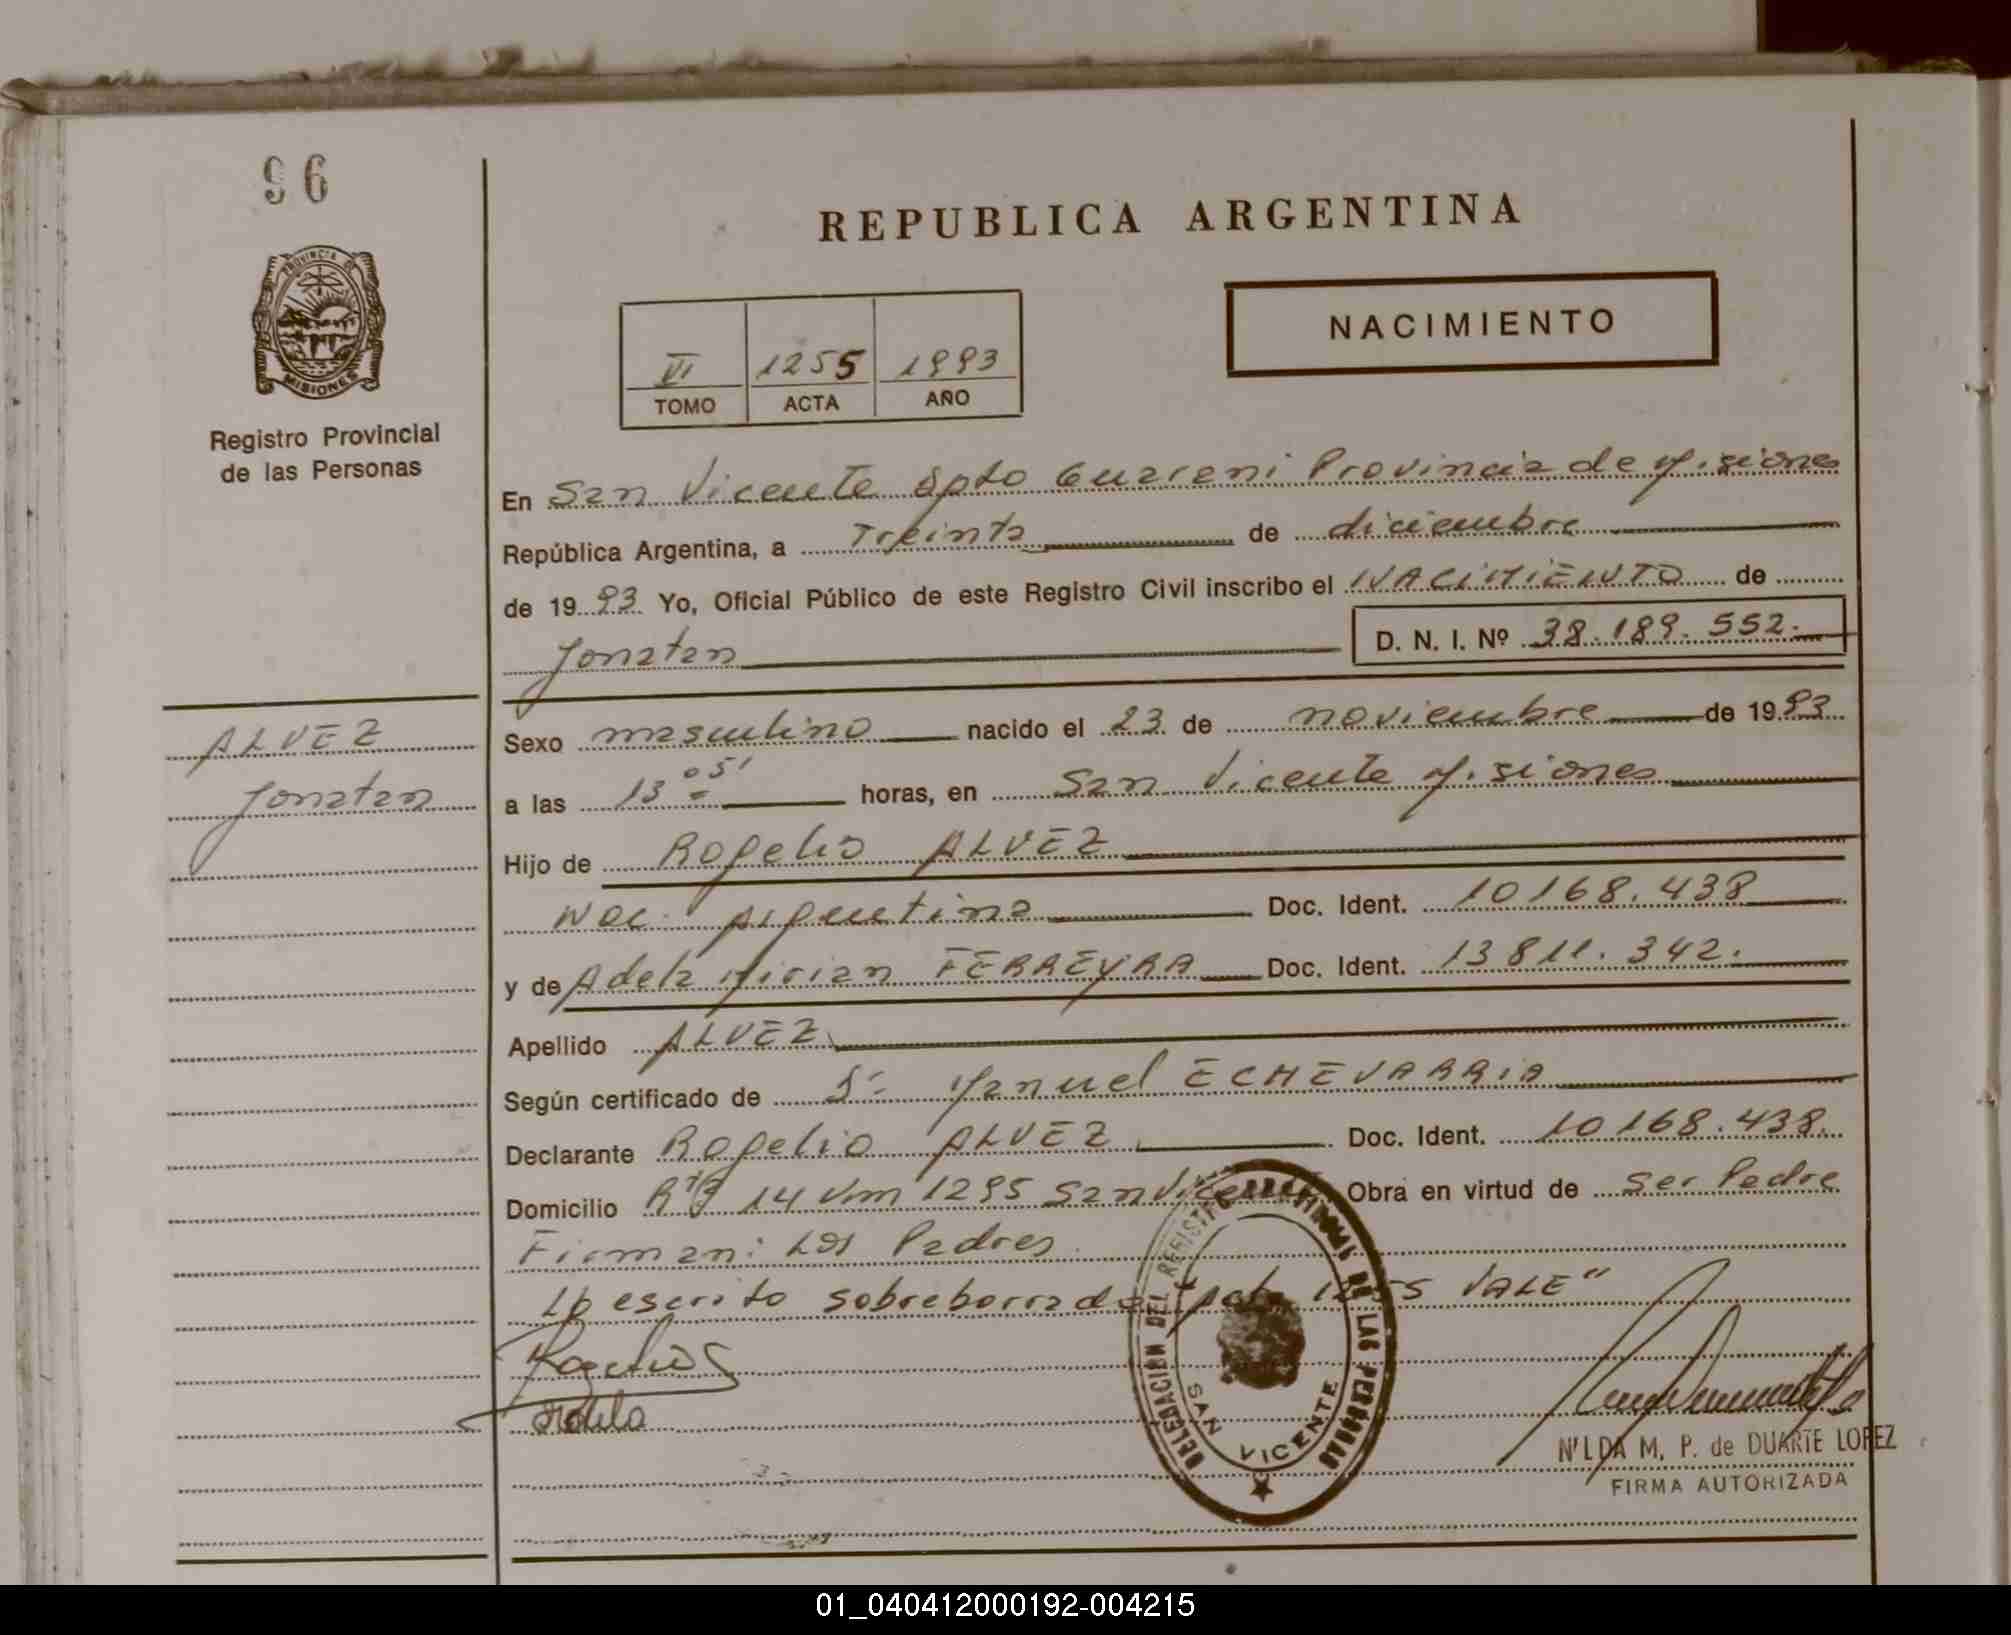 96
REPUBLICA ARGENTINA
PROVINCIA DE
MISIONES
NACIMIENTO
VI 1255 1993
TOMO ACTA AÑO
Registro Provincial
de las Personas
En San Vicente Dpto Guarani Provincia de Misiones
República Argentina, a Treinta de diciembre
de 1993 Yo, Oficial Público de este Registro Civil inscribo el NACIMIENTO de
Jonatan D. N. I. Nº 38.189.552.
ALVEZ
Jonatan
Sexo masculino nacido el 23 de noviembre de 1993
a las 13 05' horas, en San Vicente Misiones
Hijo de Rogelio ALVEZ
Nac. Argentina Doc. Ident. 10168.438
y de Adela Mirian FERREYRA Doc. Ident. 13811.342.
Apellido ALVEZ
Según certificado de Manuel ECHEVARRIA
Declarante Rogelio ALVEZ Doc. Ident. 10168.438.
Domicilio 14 Km 1295 San Vicente Obra en virtud de ser Padre
Firman: Los Padres
Lo escrito sobreborrado 1255 VALE"
Rogelio
Adela
DELEGACION DEL REGISTRO PROVINCIAL DE LAS PERSONAS
SAN VICENTE
NILDA M. P. de DUARTE LOPEZ
FIRMA AUTORIZADA
01_040412000192-004215